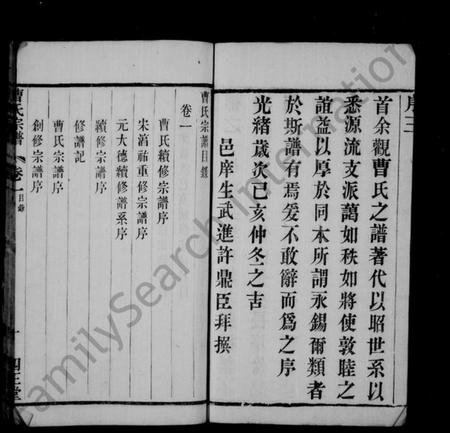 序三
首余觀曹氏之譜著代以昭世系以
悉源流支派藹如秩如將使敦睦之
誼益以厚於同本所謂永錫爾類者
於斯譜有焉爰不敢辭而為之序
光緒歲次己亥仲冬之吉
邑庠生武進許鼎臣拜撰
曹氏宗譜目錄
卷一
曹氏續修宗譜序
宋湻祐重修宗譜序
元大德續修譜系序
續修宗譜序
修譜記
曹氏宗譜序
創修宗譜序
曹氏宗譜 卷一目錄 一
FamilySearch International